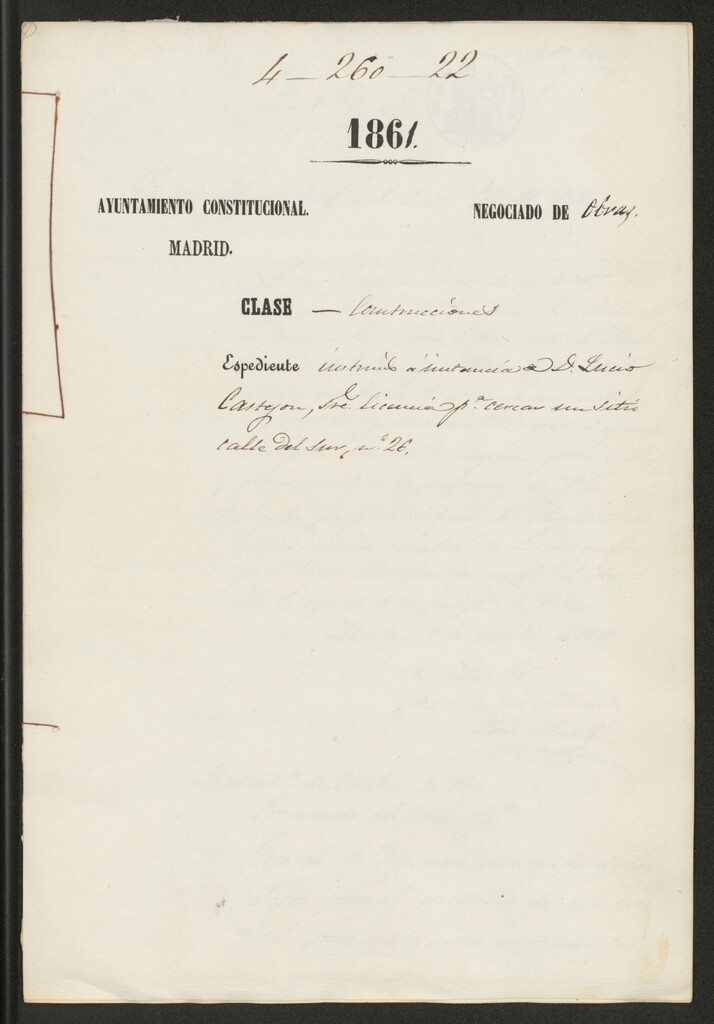 4-260-22
1861.
AYUNTAMIENTO CONSTITUCIONAL.
MADRID.
NEGOCIADO DE Obras.
CLASE — Construcciones
Espediente instruido á instancia de D. Lucio
Castejon, sre. licencia pa. cercar un sitio
calle del Sur, n.º 26.